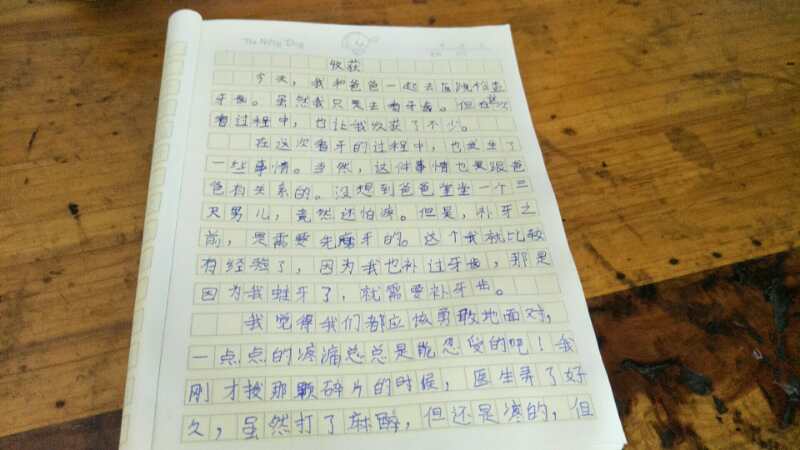 The Nifty Dog
收获
今天，我和爸爸一起去医院检查
牙齿。虽然我只是去看牙齿。但在这次
看过程中，也让我收获了不少。
在这次看牙的过程中，也发生了
一些事情。当然，这件事情也是跟爸
爸有关系的。没想到爸爸堂堂一个三
尺男儿，竟然还怕疼。但是，补牙之
前，是需要先磨牙的。这个我就比较
有经验了，因为我也补过牙齿，那是
因为我蛀牙了，就需要补牙齿。
我觉得我们都应该勇敢地面对，
一点点的疼痛总总是能忍受的吧！我
刚才拔那颗碎片的时候，医生弄了好
久，虽然打了麻醉，但还是疼的，但